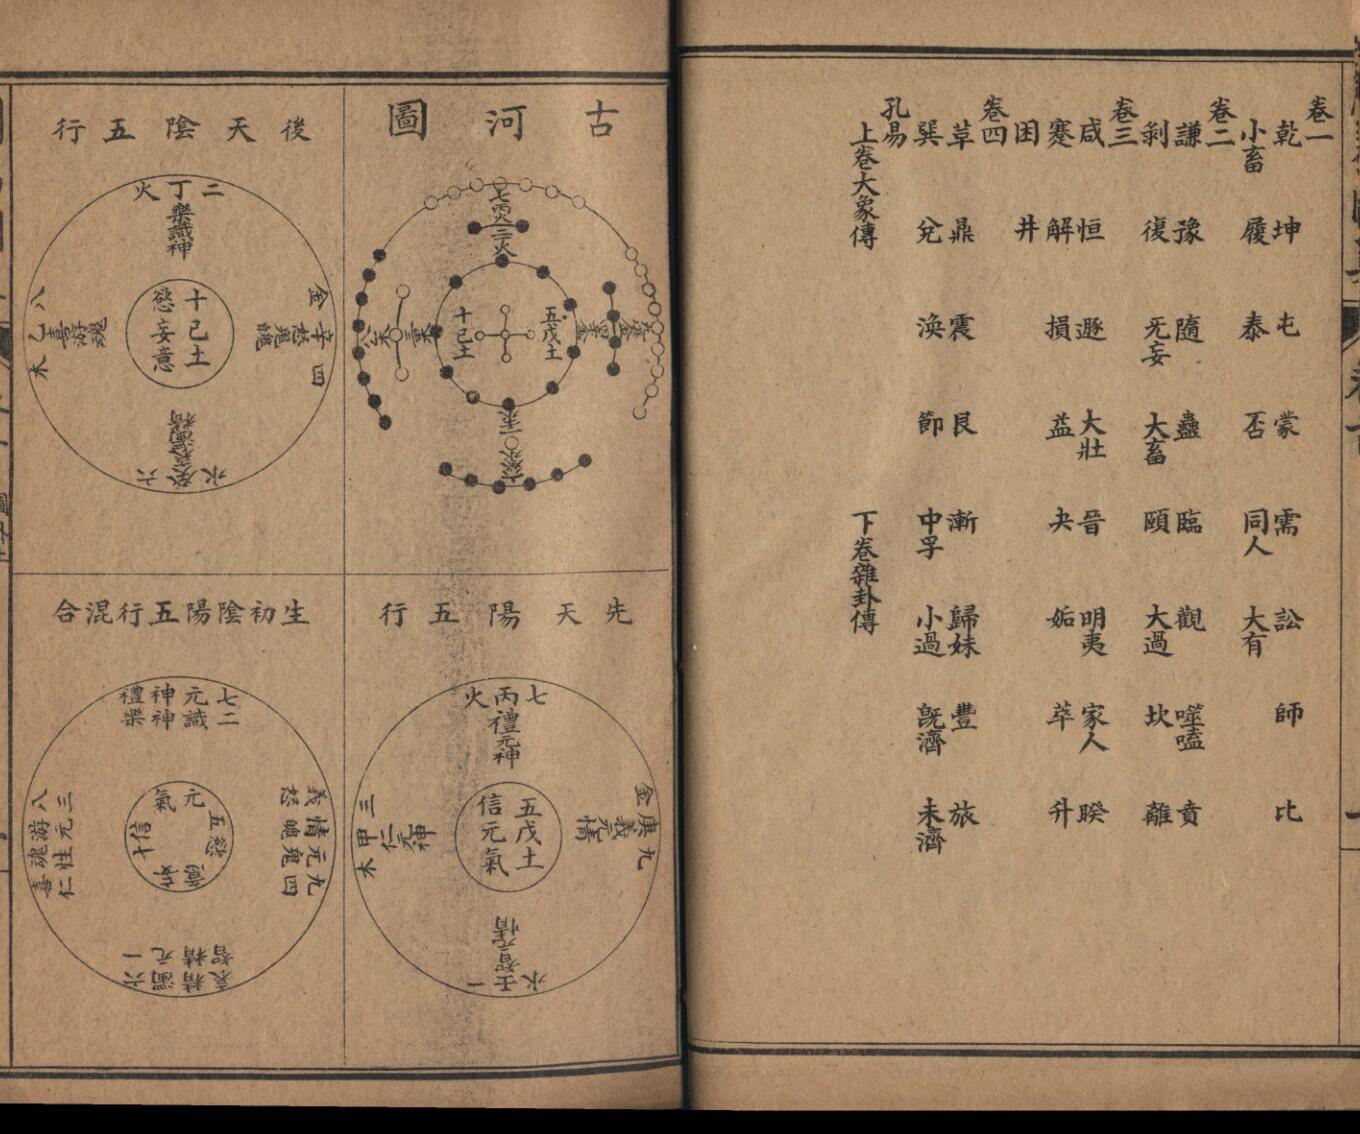 卷一
乾 坤 屯 蒙 需 訟 師 比
小畜 履 泰 否 同人 大有
卷二
謙 豫 隨 蠱 臨 觀 噬嗑 賁
剝 復 无妄 大畜 頤 大過 坎 離
卷三
咸 恒 遯 大壯 晉 明夷 家人 睽
蹇 解 損 益 夬 姤 萃 升
困 井
卷四
革 鼎 震 艮 漸 歸妹 豐 旅
巽 兌 渙 節 中孚 小過 既濟 未濟
孔易
上卷大象傳 下卷雜卦傳
古河圖
七丙火
二火
五戊土
十己土
後天陰五行
二丁火
樂識神
金辛四
怒鬼魄
十己土
慾妄意
八乙木
喜游魂
水癸六
哀濁精
先天陽五行
七丙火
禮元神
金庚九
義元情
五戊土
信元氣
三甲木
水壬一
生初陰陽五行混合
七二
元識
神神
禮樂
義情元九
怒魄鬼四
元氣
五慾
信十
三元性仁
八游魂喜
智精元一
哀精濁六